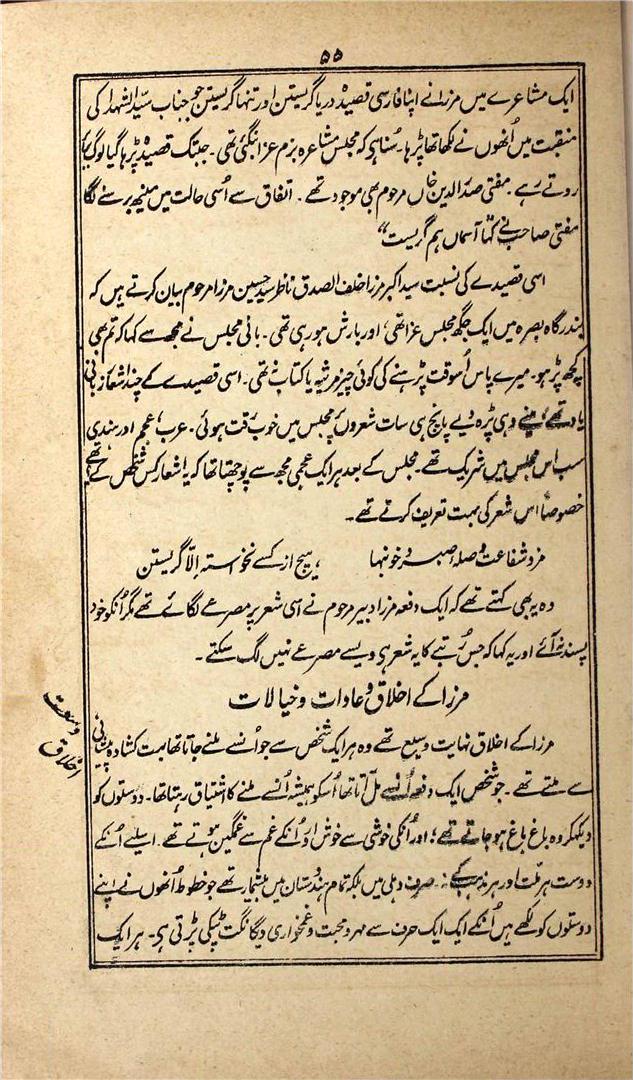 ۵۵
ایک مشاعرے میں مرزا نے اپنا فارسی قصیدہ دریا گریستن اور تنہا گریستن جو جناب سیّد الشہدا کی
منقبت میں اُنھوں نے لکھا تھا پڑہا۔ سُنا ہی کہ مجلس مشاعرہ بزم عزا بنگئی تھی۔ جبتک قصیدہ پڑہا گیا لوگ
روتے رہے۔ مفتی صدر الدین خاں مرحوم بھی موجود تھے۔ اتفاق سے اُسی حالت میں مینھ برسنے لگا
مفتی صاحب نے کہا آسماں ہم گریست“
اسی قصیدے کی نسبت سید اکبر مرزا خلف الصدق ناظر سید حسین مرزا مرحوم بیان کرتے ہیں کہ
بندرگاہ بصرہ میں ایک جگھ مجلس عزا تھی، اور بارش ہو رہی تھی۔ بانی مجلس نے مجھ سے کہا کہ تم بھی
کچھ پڑہو۔ میرے پاس اُسوقت پڑہنے کی کوئی چیز مرثیہ یا کتاب نہ تھی۔ اسی قصیدے کے چند اشعار زبانی
یاد تھے، مینے وہی پڑہ دیے پانچ ہی سات شعروں پر مجلس میں خوب رقت ہوئی۔ عرب، عجم اور ہندی
سب اس مجلس میں شریک تھے۔ مجلس کے بعد ہر ایک عجمی مجھ سے پوچھتا تھا کہ یہ اشعار کس شخص کے تھے؟
خصوصاً اس شعر کی بہت تعریف کرتے تھے۔
مزد شفاعت و صلہ صبر و خونبہا ، ہیچ از کسے نخواستہ اِلّا گریستن
وہ یہ بھی کہتے تھے کہ ایک دفعہ مرزا دبیر مرحوم نے اسی شعر پر مصرعے لگائے تھے مگر اُنکو خود
پسند نہ آئے اور یہ کہا کہ جس رُتبے کا یہ شعر ہی ویسے مصرعے نہیں لگ سکتے۔
مرزا کے اخلاق و عادات و خیالات
وسعت اخلاق
مرزا کے اخلاق نہایت وسیع تھے وہ ہر ایک شخص سے جو اُنسے ملنے جاتا تھا بہت کشادہ پیشانی
سے ملتے تھے۔ جو شخص ایک دفعہ اُنسے مل آتا تھا اُسکو ہمیشہ اُنسے ملنے کا اشتیاق رہتا تھا۔ دوستوں کو
دیکھکر وہ باغ باغ ہو جاتے تھے؛ اور اُنکی خوشی سے خوش اور اُنکے غم سے غمگین ہوتے تھے۔ اسلیے اُنکے
دوست ہر ملّت اور ہر مذہب کے نہ صرف دہلی میں بلکہ تمام ہندوستان میں بیشمار تھے جو خطوط اُنھوں نے اپنے
دوستوں کو لکھے ہیں اُنکے ایک ایک حرف سے مہر و محبت و غمخواری و یگانگت ٹپکی پڑتی ہی۔ ہر ایک